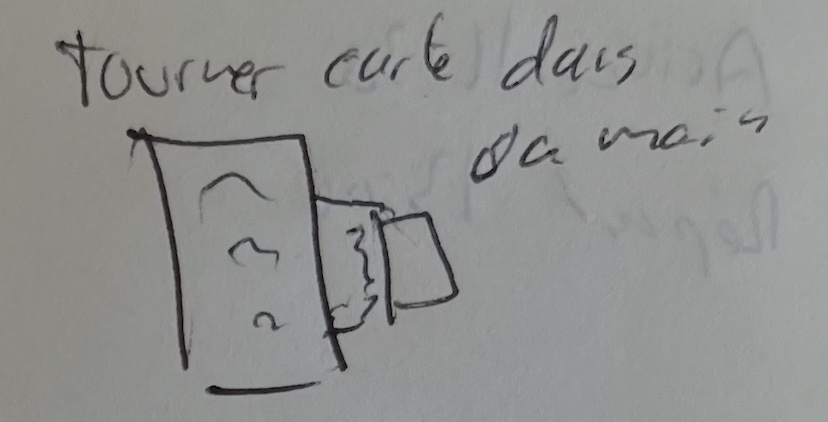 Tourner carte dans
sa main